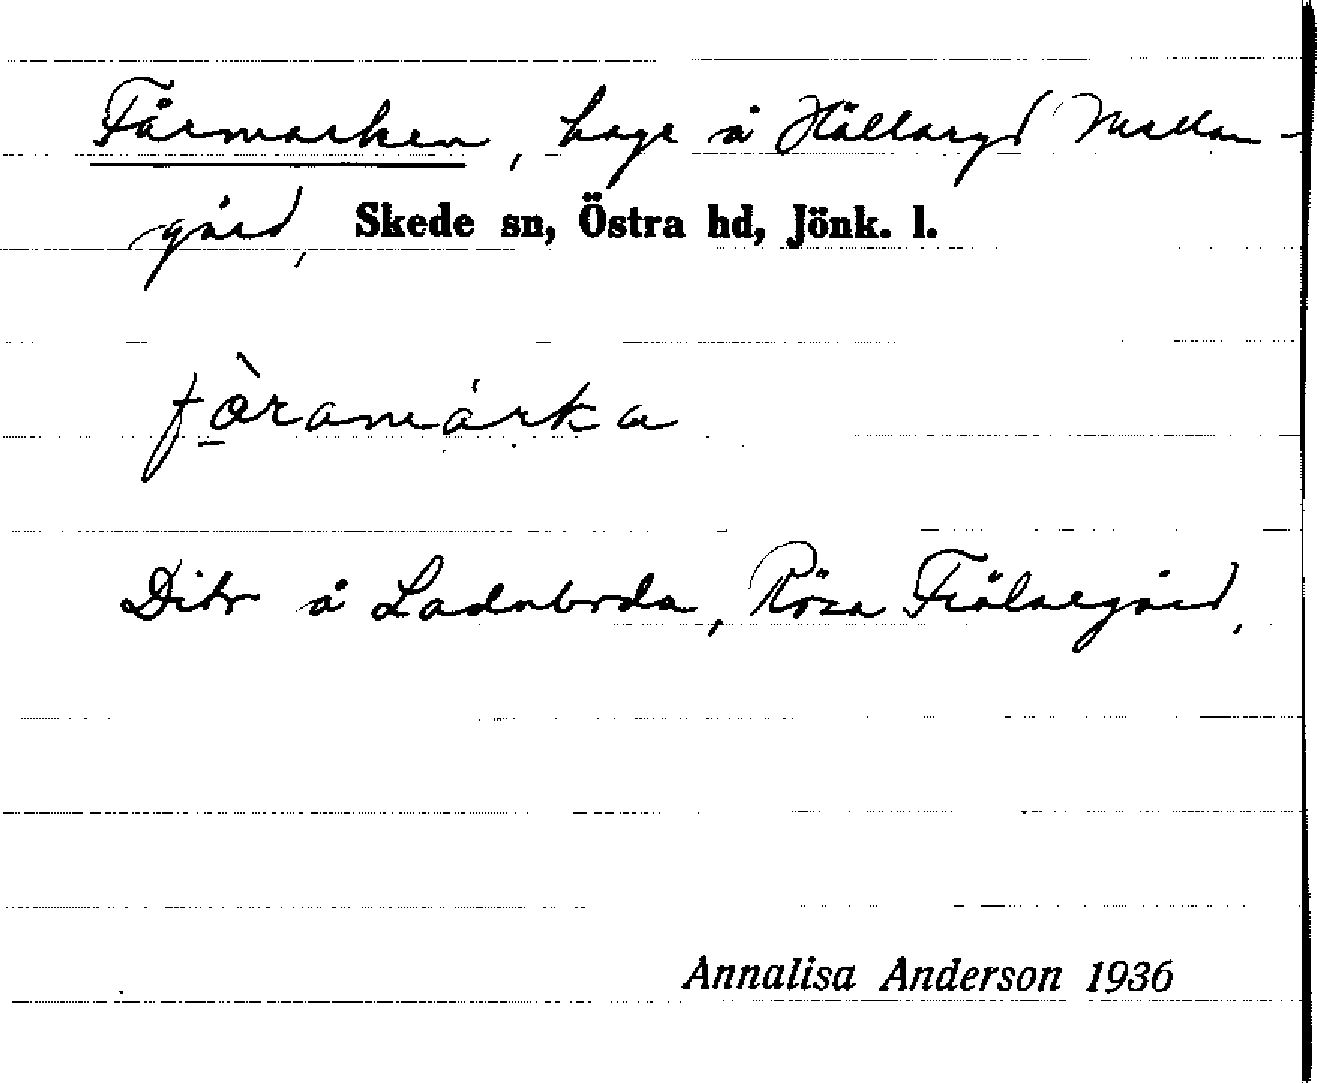 Fårmarken, hage å Hällaryd Mellan-
gård, Skede sn, Östra hd, Jönk. l.
fòramárka
Dito å Laduboda, Rösa Frälsegård,
Annalisa Anderson 1936